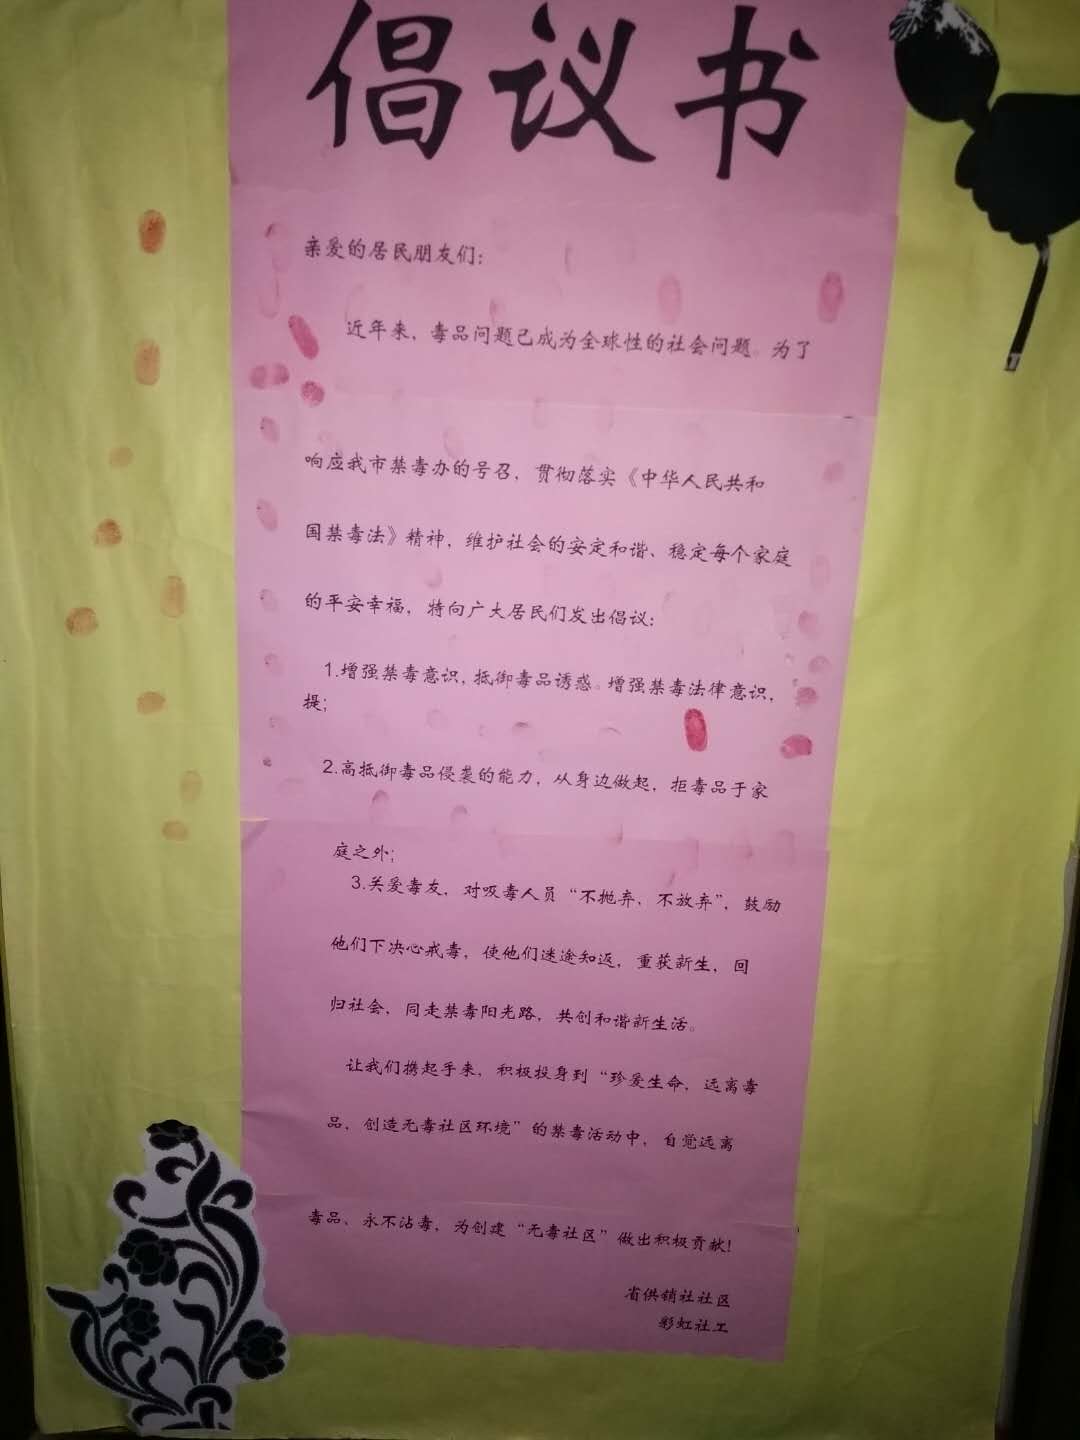 倡议书
亲爱的居民朋友们：
近年来，毒品问题已成为全球性的社会问题。为了
响应我市禁毒办的号召，贯彻落实《中华人民共和
国禁毒法》精神，维护社会的安定和谐、稳定每个家庭
的平安幸福，特向广大居民们发出倡议：
1.增强禁毒意识，抵御毒品诱惑。增强禁毒法律意识，
提；
2.高抵御毒品侵袭的能力，从身边做起，拒毒品于家
庭之外；
3.关爱毒友，对吸毒人员“不抛弃、不放弃”，鼓励
他们下决心戒毒，使他们迷途知返，重获新生，回
归社会，同走禁毒阳光路，共创和谐新生活。
让我们携起手来，积极投身到“珍爱生命，远离毒
品，创造无毒社区环境”的禁毒活动中，自觉远离
毒品、永不沾毒，为创建“无毒社区”做出积极贡献！
省供销社社区
彩虹社工